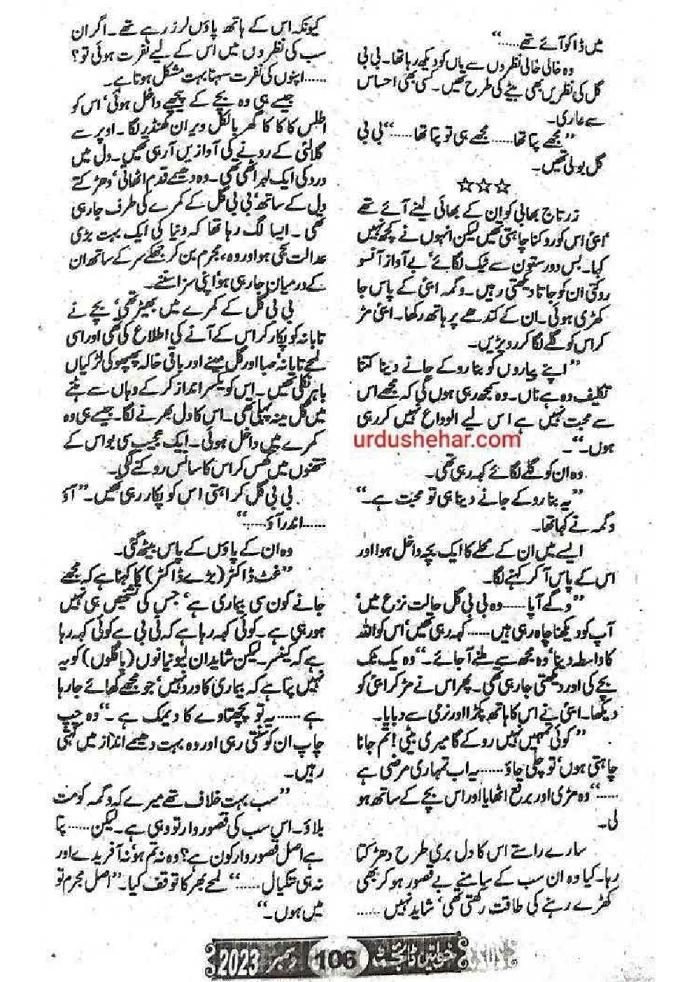 میں ڈاکو آئے تھے......“
وہ خالی خالی نظروں سے یاں کو دیکھ رہا تھا۔ بی بی
گل کی نظریں بھی بیٹے کی طرح تھیں۔ کسی بھی احساس
سے عاری۔
”مجھے پتا تھا...... مجھے ہی تو پتا تھا......“ بی بی
گل بولی تھیں۔
☆☆☆
زرتاج بھابی کو ان کے بھائی لینے آئے تھے
امی اس کو روکنا چاہتی تھیں لیکن انہوں نے کچھ نہیں
کہا۔ بس دور ستون سے ٹیک لگائے، بے آواز آنسو
روکتی ان کو جاتا دیکھتی رہیں۔ وگمہ امی کے پاس جا
کھڑی ہوئی۔ ان کے کندھے پر ہاتھ رکھا۔ امی مڑ
کر اس کو گلے لگا کر رو پڑیں۔
”اپنے پیاروں کو بنا روکے جانے دینا کتنا
تکلیف دہ ہے ناں۔ وہ سمجھ رہی ہوں گی کہ مجھے اس
سے محبت نہیں ہے اس لیے الوداع نہیں کر رہی
ہوں۔“
urdushehar.com
وہ ان کو گلے لگائے کہہ رہی تھی۔
”یہ بنا روکے جانے دینا ہی تو محبت ہے۔“
وگمہ نے کہا تھا۔
ایسے میں ان کے محلے کا ایک بچہ داخل ہوا اور
اس کے پاس آ کر کہنے لگا۔
”وگے آپا...... وہ بی بی گل حالت نزع میں،
آپ کو دیکھنا چاہ رہی ہیں...... کہہ رہی تھیں، اس کو اللہ
کا واسطہ دینا، وہ مجھ سے ملنے آجائے۔“ وہ یک ٹک
بچے کی اور دیکھتی جا رہی تھی۔ پھر اس نے مڑ کر امی کو
دیکھا۔ امی نے اس کا ہاتھ پکڑا اور نرمی سے دبایا۔
”کوئی تمہیں نہیں روکے گا میری بیٹی! تم جانا
چاہتی ہوں، تو چلی جاؤ...... یہ اب تمہاری مرضی ہے
......“ وہ مڑی اور برقع اٹھایا اور اس بچے کے ساتھ ہو
لی۔
سارے راستے اس کا دل بری طرح دھڑکتا
رہا۔ کیا وہ ان سب کے سامنے بے قصور ہو کر بھی
کھڑے رہنے کی طاقت رکھتی تھی، شاید نہیں......
کیونکہ اس کے ہاتھ پاؤں لرز رہے تھے۔ اگر ان
سب کی نظروں میں اس کے لیے نفرت ہوئی تو؟
...... اپنوں کی نفرت سہنا بہت مشکل ہوتا ہے۔
جیسے ہی وہ بچے کے پیچھے داخل ہوئی، اس کو
اطلس کاکا کا گھر بالکل ویران کھنڈر لگا۔ اوپر سے
گلالئی کے رونے کی آوازیں آ رہی تھیں۔ دل میں
درد کی ایک لہر اٹھی تھی۔ وہ دھیمے قدم اٹھاتی، دھڑکتے
دل کے ساتھ، بی بی گل کے کمرے کی طرف جا رہی
تھی۔ ایسا لگ رہا تھا کہ دنیا کی ایک بہت بڑی
عدالت سجی ہو اور وہ، مجرم بن کر جھکے سر کے ساتھ ان
کے درمیان جا رہی ہو، اپنی سزا سننے۔
بی بی گل کے کمرے میں بھیڑ تھی، بچے نے
تابانہ کو پکار کر اس کے آنے کی اطلاع کی تھی اور اسی
لمحے تابانہ، صبا اور گل مینے اور باقی خالہ پھپھو کی لڑکیاں
باہر نکلی تھیں۔ اس کو یکسر انداز کر کے وہاں سے ہٹنے
میں گل مینہ پہلی تھی۔ اس کا دل بھرنے لگا۔ جیسے ہی وہ
کمرے میں داخل ہوئی۔ ایک عجیب سی بو اس کے
نتھنوں میں گھس کر اس کا سانس روکنے لگی۔
بی بی گل کراہتی اس کو پکار رہی تھیں۔ ”آؤ
...... اندر آؤ......“
وہ ان کے پاؤں کے پاس بیٹھ گئی۔
”غٹ ڈاکٹر (بڑے ڈاکٹر) کا کہنا ہے کہ مجھے
جانے کون سی بیماری ہے، جس کی تشخیص ہی نہیں
ہو رہی ہے۔ کوئی کہہ رہا ہے کہ ٹی بی ہے کوئی کہہ رہا
ہے کہ کینسر۔ لیکن شاید ان لیونیانوں (پاگلوں) کو یہ
نہیں پتا ہے کہ بیماری کا درد نہیں، جو مجھے کھائے جا رہا
ہے...... یہ تو پچھتاوے کا دیمک ہے۔“ وہ چپ
چاپ ان کو سنتی رہی اور وہ بہت دھیمے انداز میں کہتی
رہیں۔
”سب بہت خلاف تھے میرے کہ وگمہ کو مت
بلاؤ۔ اس سب کی قصوروار تو وہی ہے۔ لیکن...... پتا
ہے اصل قصوروار کون ہے؟ وہ نہ تم ہو، نہ آفریدے اور
نہ ہی شکیال......“ لمحے بھر کا توقف کیا۔ ”اصل مجرم تو
میں ہوں۔“
خواتین ڈائجسٹ 106 دسمبر 2023